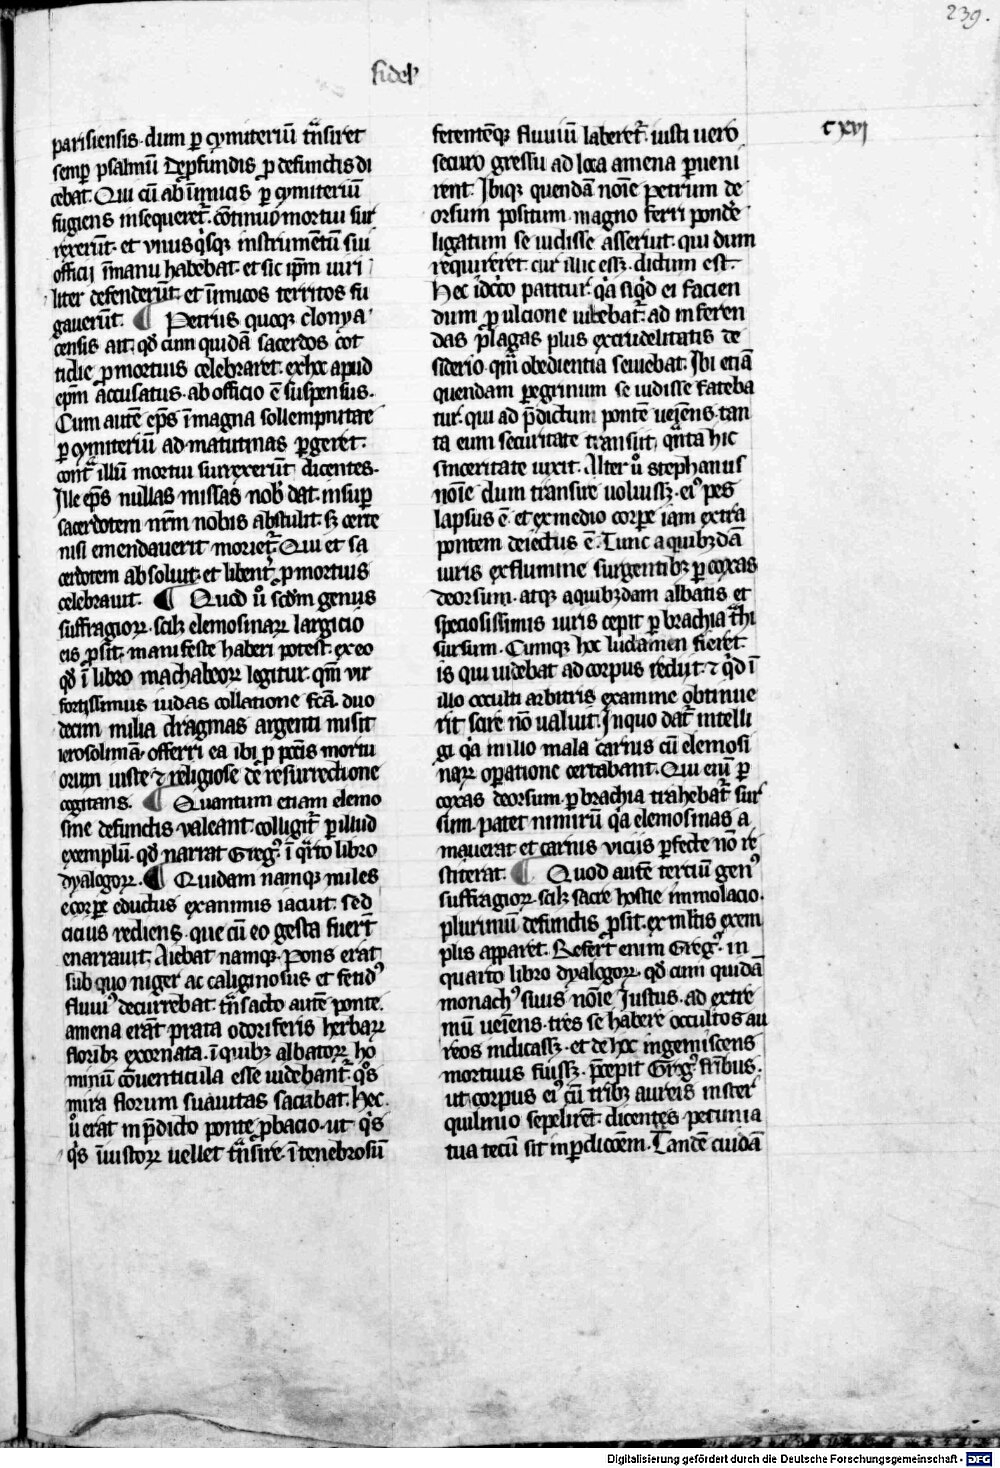 239.
fidel'
cxvj
parisiensis. dum ꝑ cymiteriū tͣnsiret
semꝑ psalmū Deꝓfundis ꝓ defunctis di
cebat. Qui cū ab īimicis ꝑ cymiteriū
fugiens insequeret᷑. cōtinuo mortui sur
rexerūt. et vnusqͥsqꝫ instrumētū sui
officij īmanu habebat. et sic ip̄m viri
liter defenderūt. et īimicos territos fu
gauerūt. ¶ Petrus quoqꝫ clonya
censis ait. qd̓ cum quidā sacerdos cot
tidie ꝓ mortuis celebraret. ex hͦc apud
ep̄m accusatus. ab officio ē suspensus.
Cum autē ep̄s ī magna sollempnitate
ꝑ cymiteriū ad matutinas ꝑgeret.
contͣ illū mortui surrexerūt dicentes.
Ille ep̄s nullas missas nob̓ dat. insuꝑ
sacerdotem nr̄m nobis abstulit. sꝫ certe
nisi emendauerit moriet᷑. Qui et sa
cerdotem absoluit. et libent᷑ ꝓ mortuis
celebrauit. ¶ Quod u̓ scd̄m genus
suffragioꝝ. scilꝫ elemosinaꝝ largicio
eis ꝓsit. manifeste haberi potest. ex eo
qd̓ ī libro machabeoꝝ legitur. qm̄ vir
fortissimus iudas collatione fc̄a. duo
decim milia dragmas argenti misit
ierosolimā. offerri ea ibi ꝓ pc̄cis mortu
orum iuste ⁊ religiose de resurrectione
cogitans. ¶ Quantum etiam elemo
sine defunctis valeant. colligit᷑ ꝑ illud
exemplū. qd̓ narrat Gregꝰ. ī qͣrto libro
dyalogoꝝ. ¶ Quidam namqꝫ miles
e corꝑe eductus exanimis iacuit. sed
cicius rediens. que cū eo gesta fuer̄t
enarrauit. Aiebat namqꝫ. Pons erat
sub quo niger ac caliginosus et fetidꝰ
fluuiꝰ decurrebat. tͣnsacto autē ponte.
amena erāt prata odoriferis herbaꝝ
floribꝫ exornata. ī quibꝫ albatoꝝ ho
minū cōuenticula esse videbant᷑. qͦs
mira florum suauitas saciabat. Hec
u̓ erat in p̄dicto ponte ꝓbacio. ut qͥs
qͥs īiustoꝝ uellet tͣnsire. ī tenebrosū
fetentēqꝫ fluuiū laberet᷑. iusti uero
securo gressu ad loca amena ꝑueni
rent. Ibiqꝫ quendā noīe petrum de
orsum positum magno ferri pondere
ligatum se vidisse asseruit. qui dum
requireret cur illic essꝫ. dictum est.
Hec idcͦco patitur. qͣa siqͥd ei facien
dum ꝓ ulcione iubebat᷑. ad inferen
das plagas plus ex crudelitatis de
siderio. qͣm obedientia seruiebat. Ibi etiā
quendam peregrinum se vidisse fateba
tur. qui ad p̄dictum pontē veīens. tan
ta eum securitate transiit. qͣnta hic
sinceritate vixit. Alter u̓ stephanus
noīe dum transire voluissꝫ. eiꝰ pes
lapsus ē. et ex medio corꝑe iam extra
pontem deiectus ē. Tunc a quibꝫdā
viris ex flumine surgentibꝫ ꝑ coxas
deorsum. atqꝫ a quibꝫdam albatis et
speciosissimis viris cepit ꝑ brachia tͣhi
sursum. Cumqꝫ hoc luctamen fieret.
is qui videbat ad corpus rediit. ⁊ qͥd ī
illo occulti arbitris examine obtinue
rit scire nō valuit. In quo dat᷑ intelli
gi qͣa in illo mala carnis cū elemosi
naꝝ oꝑatione certabant. Qui enī ꝑ
coxas deorsum. ꝑ brachia trahebat᷑ sur
sum. patet nimirū qͣa elemosinas a
mauerat et carnis viciis ꝑfecte nō re
stiterat. ¶ Quod autē terciū genꝰ
suffragioꝝ. scilꝫ sacre hostie immolacio.
plurimū defunctis ꝓsit. ex ml̓tis exem
plis apparet. Refert enim Gregꝰ. in
quarto libro dyalogoꝝ. qd̓ cum quidā
monachꝰ suus noīe Justus. ad extre
mū veīens. tres se habere occultos au
reos indicassꝫ. et de hoc ingemiscens
mortuus fuissꝫ. p̄cepit Gregꝰ fr̄ibus.
ut corpus eiꝰ cū tribꝫ aureis in ster
quilinio sepelirent. dicentes. pecunia
tua tecū sit in ꝑdicōem. Tandē cuidā
Digitalisierung gefördert durch die Deutsche Forschungsgemeinschaft - DFG